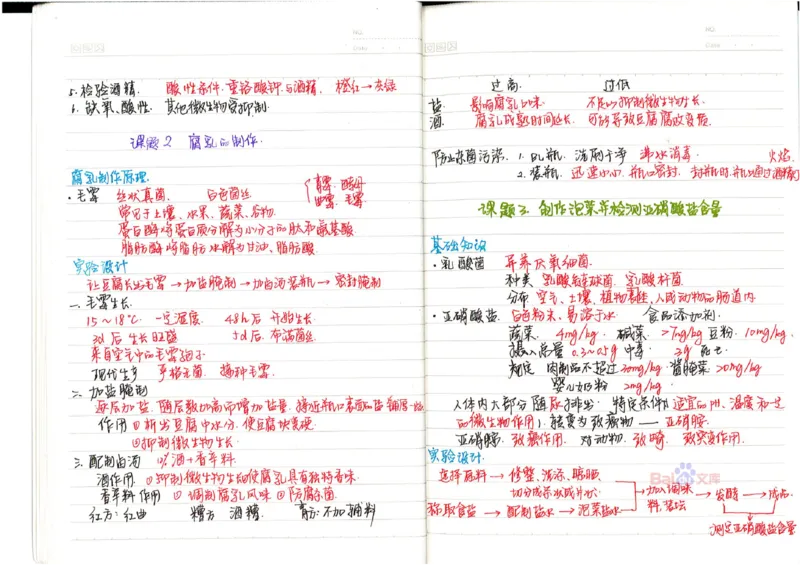 5. 检验酒精. 酸性条件. 重铬酸钾与酒精. 橙红→灰绿
6. 缺氧、酸性. 其他微生物受抑制.
课题2 腐乳的制作.
腐乳制作原理.
·毛霉 丝状真菌. 白色菌丝 青霉. 酵母 曲霉. 毛霉
常见于土壤、水果、蔬菜、谷物.
蛋白酶将蛋白质分解为小分子的肽和氨基酸.
脂肪酶将脂肪水解为甘油、脂肪酸
实验设计
让豆腐长出毛霉→加盐腌制→加卤汤装瓶→密封腌制
一. 毛霉生长.
15~18℃. 一定湿度. 48h后 开始生长.
3d后 生长旺盛 5d后 布满菌丝.
来自空气中的毛霉孢子.
现代生产 严格无菌. 接种毛霉.
二. 加盐腌制
逐层加盐. 随层数加高而增加盐量. 接近瓶口表面的盐铺厚一些
作用 ①析出豆腐中水分. 使豆腐块变硬.
②抑制微生物生长.
三. 配制卤汤 酒+香辛料.
酒作用 ①抑制微生物生长②使腐乳具有独特香味.
香辛料作用 ①调制腐乳风味 ②防腐杀菌.
红方: 红曲 糟方 酒精. 青方: 不加辅料
过高. 过低
盐 影响腐乳口味. 不足以抑制微生物生长.
酒 腐乳成熟时间延长. 可能导致豆腐腐败变质.
防止杂菌污染. 1. 洗瓶. 洗刷干净 沸水消毒. 火焰.
2. 装瓶. 迅速小心. 瓶口密封. 封瓶时. 瓶口通过酒精灯
课题3. 制作泡菜并检测亚硝酸盐含量
基础知识
·乳酸菌 异养厌氧细菌.
种类 乳酸链球菌. 乳酸杆菌.
分布 空气、土壤、植物表面、人或动物的肠道内
·亚硝酸盐. 白色粉末、易溶于水 食品添加剂.
蔬菜. 4mg/kg. 咸菜. >7mg/kg 豆粉. 10mg/kg.
摄入总量 0.3~0.5g 中毒 3g 死亡
规定 肉制品不超过30mg/kg 酱腌菜 20mg/kg
婴儿奶粉 2mg/kg.
人体内大部分随尿排出. 特定条件(适宜的pH、温度和一定
的微生物作用), 转变为致癌物——亚硝胺.
亚硝胺. 致癌作用. 对动物. 致畸. 致突变作用.
实验设计.
选择原料→修整、洗涤、晾晒、
切分成条状或片状 → 加入调味料, 装坛 → 发酵 → 成品
称取食盐→配制盐水→泡菜盐水
测定亚硝酸盐含量
Bai 文库